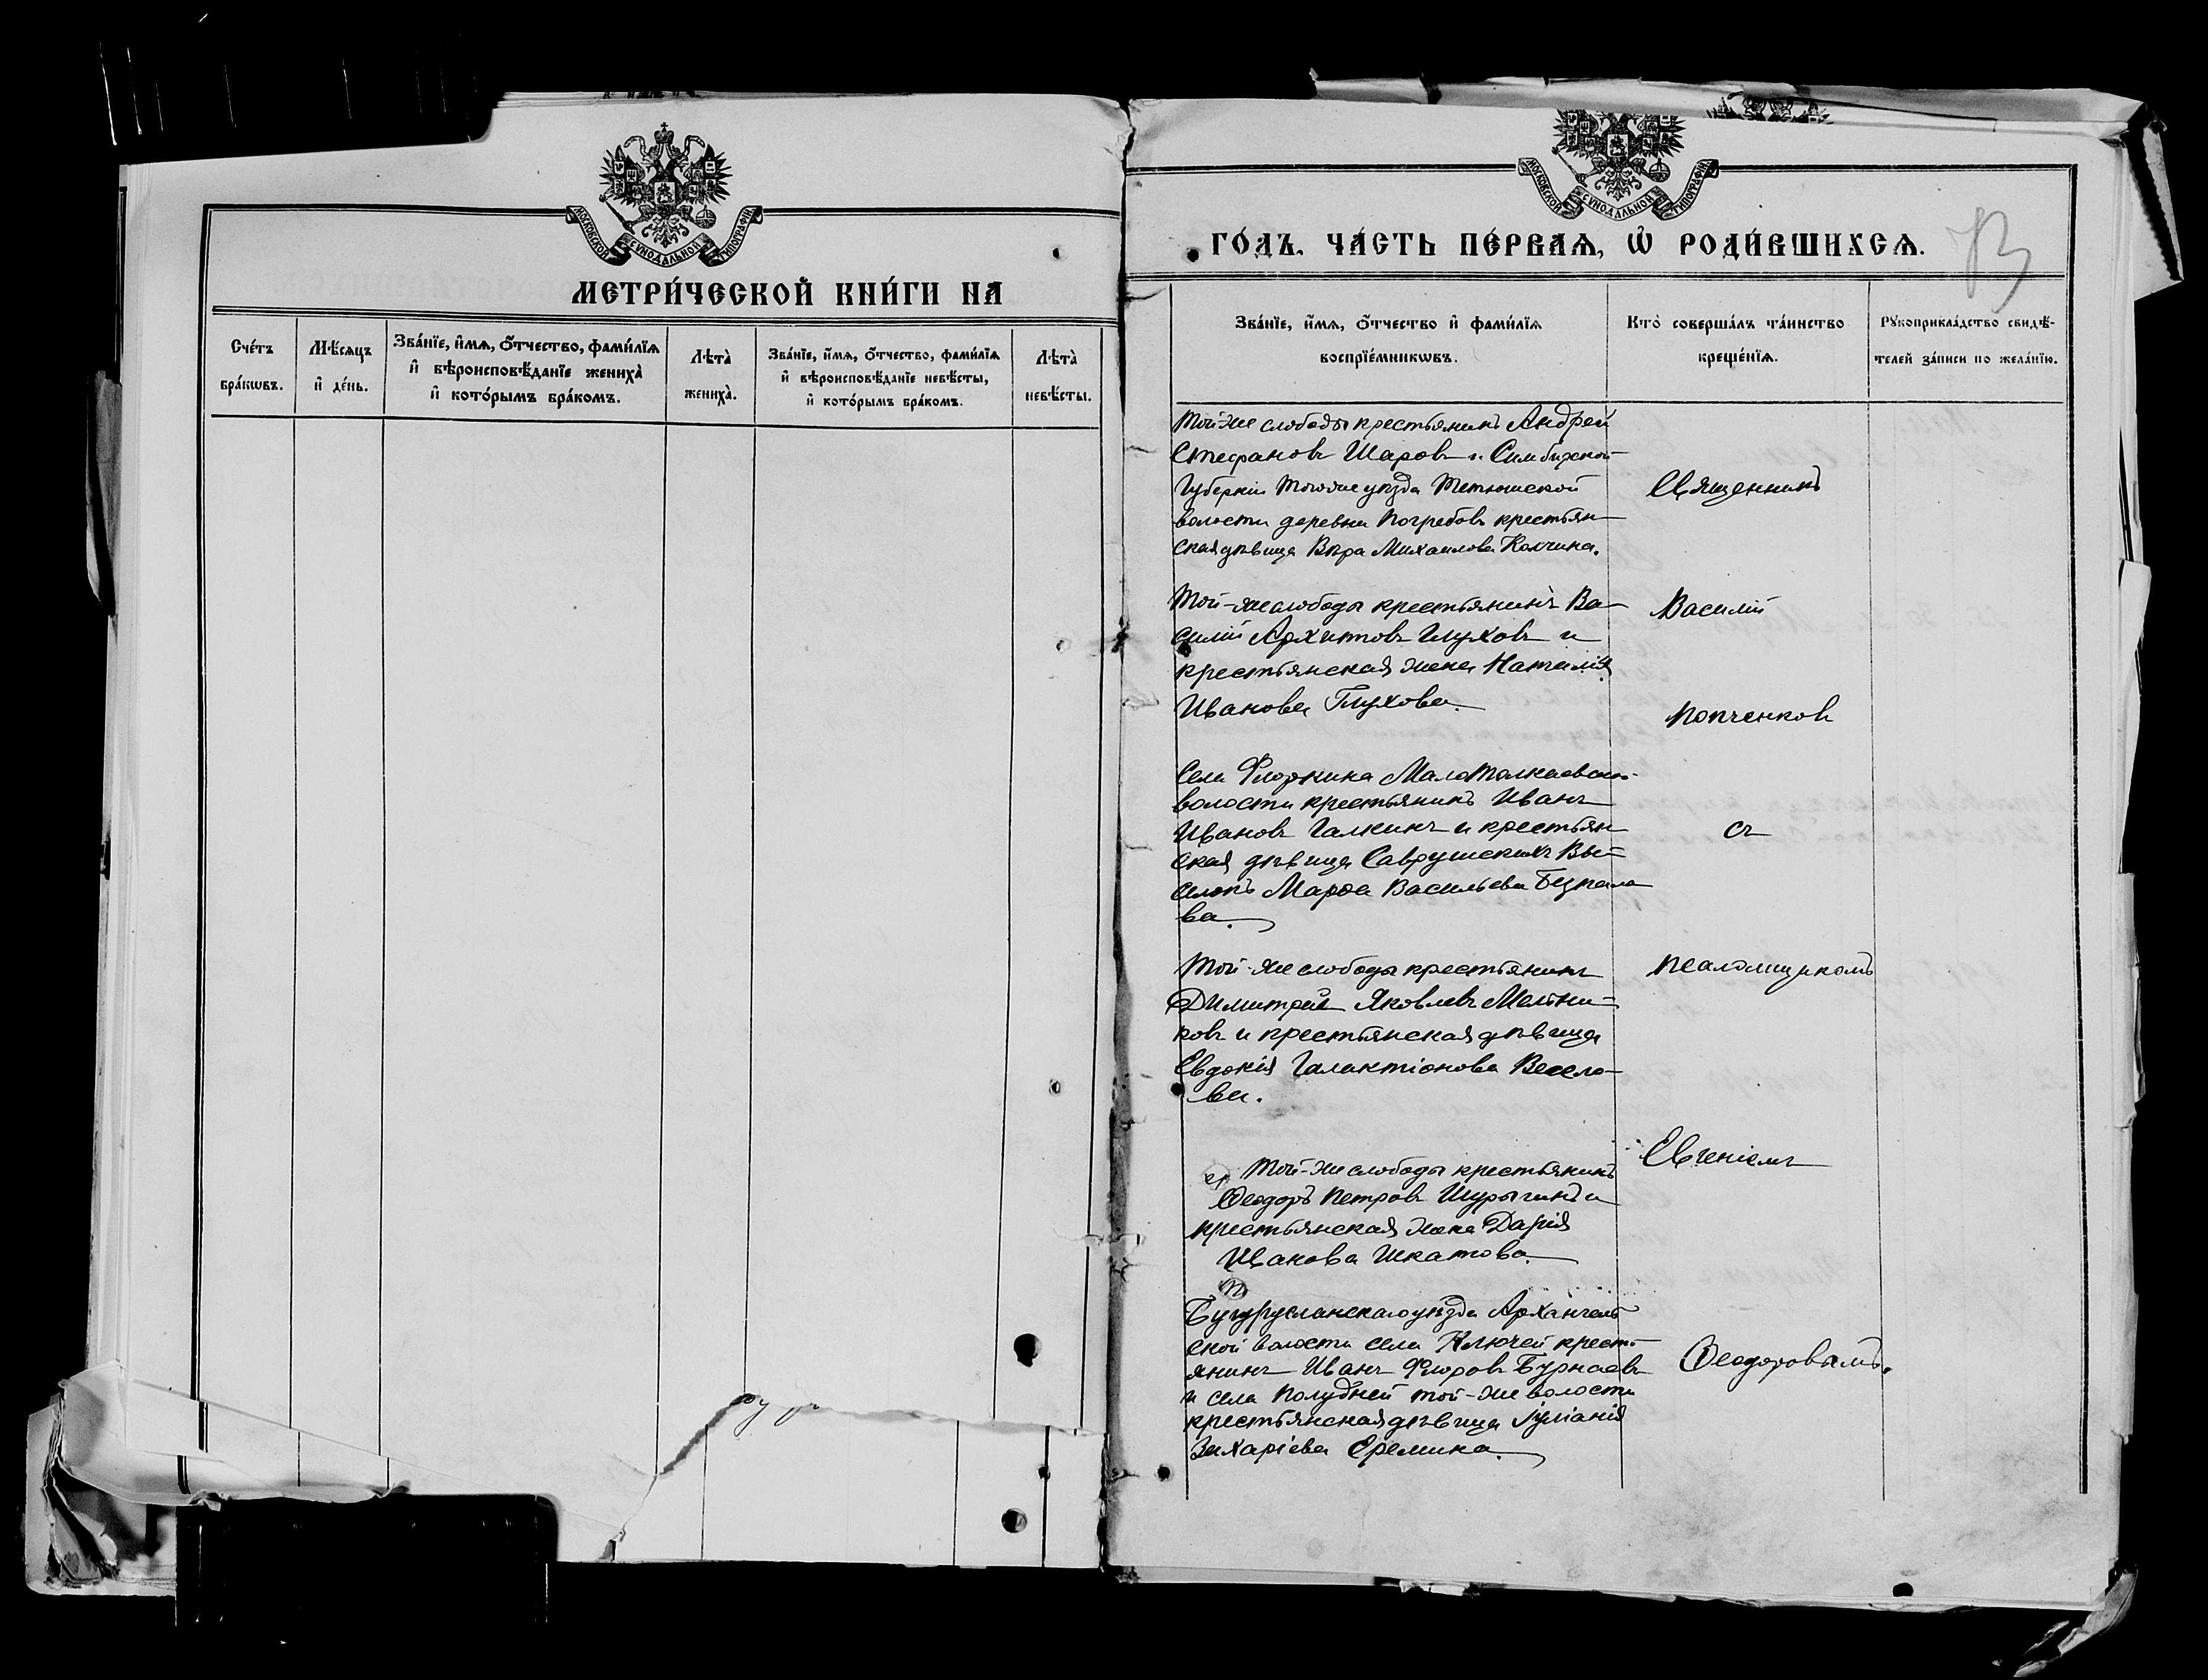 МОСКОВСКОЙ СѴНОДАЛЬНОЙ ТИПОГРАФІИ
МЕТРИ́ЧЕСКОЙ КНИ́ГИ НА
Сче́тъ бра́кѡвъ.
Мѣ́сяцъ и҆ де́нь.
Зва́нїе, и҆́мѧ, ѻ҆́тчество, фами́лїѧ и҆ вѣроисповѣ́данїе жениха̀ и҆ кото́рымъ бра́комъ.
Лѣта̀ жениха̀.
Зва́нїе, и҆́мѧ, ѻ҆́тчество, фами́лїѧ и҆ вѣроисповѣ́данїе невѣ́сты, и҆ кото́рымъ бра́комъ.
Лѣта̀ невѣ́сты.
МОСКОВСКОЙ СѴНОДАЛЬНОЙ ТИПОГРАФІИ
ГО́ДЪ. ЧА́СТЬ ПЕ́РВАѦ, Ѡ҆ РОДИ́ВШИХСѦ.
Зва́нїе, и҆́мѧ, ѻ҆́тчество и҆ фами́лїѧ
воспрїе́мникѡвъ.
Кто̀ соверша́лъ та́инство
креще́нїѧ.
Рꙋкоприкла́дство свидѣ́-
телей за́писи по жела́нїю.
Той-же слободы крестьянинъ Андрей
Стефановъ Шаровъ и Симбирской
Губерніи того же уѣзда Тетюшской
волости деревни Погребовъ крестьян
ская дѣвица Вѣра Михаилова Колчина.
Той-же слободы крестьянинъ Ва-
силій Архиповъ Глуховъ и
крестьянская жена Наталія
Иванова Глухова.
Села Флоркина Малотолкаевской
волости крестьянинъ Иванъ
Ивановъ Галкинъ и крестьян
ская дѣвица Саврушскихъ Вы-
селокъ Марѳа Васильева
ва.
Той-же слободы крестьянинъ
Димитрій Яковлевъ Мельни-
ковъ и крестьянская дѣвица
Евдокія Галактіонова Весело-
ва.
Той-же слободы крестьянинъ
Ѳеодоръ Петровъ Шурыгинъ и
крестьянская жена Дарія
Иванова Шкатова.
Бугурусланскаго уѣзда Архангель
ской волости села Ключей кресть
янинъ Иванъ Флоровъ Бурнаевъ
и села Полудней той-же волости
крестьянская дѣвица Іуліанія
Захаріева Еремина.
Священникъ
Василій
Попченковъ
съ
псаломщикомъ
Евгеніемъ
Ѳеодоровымъ.